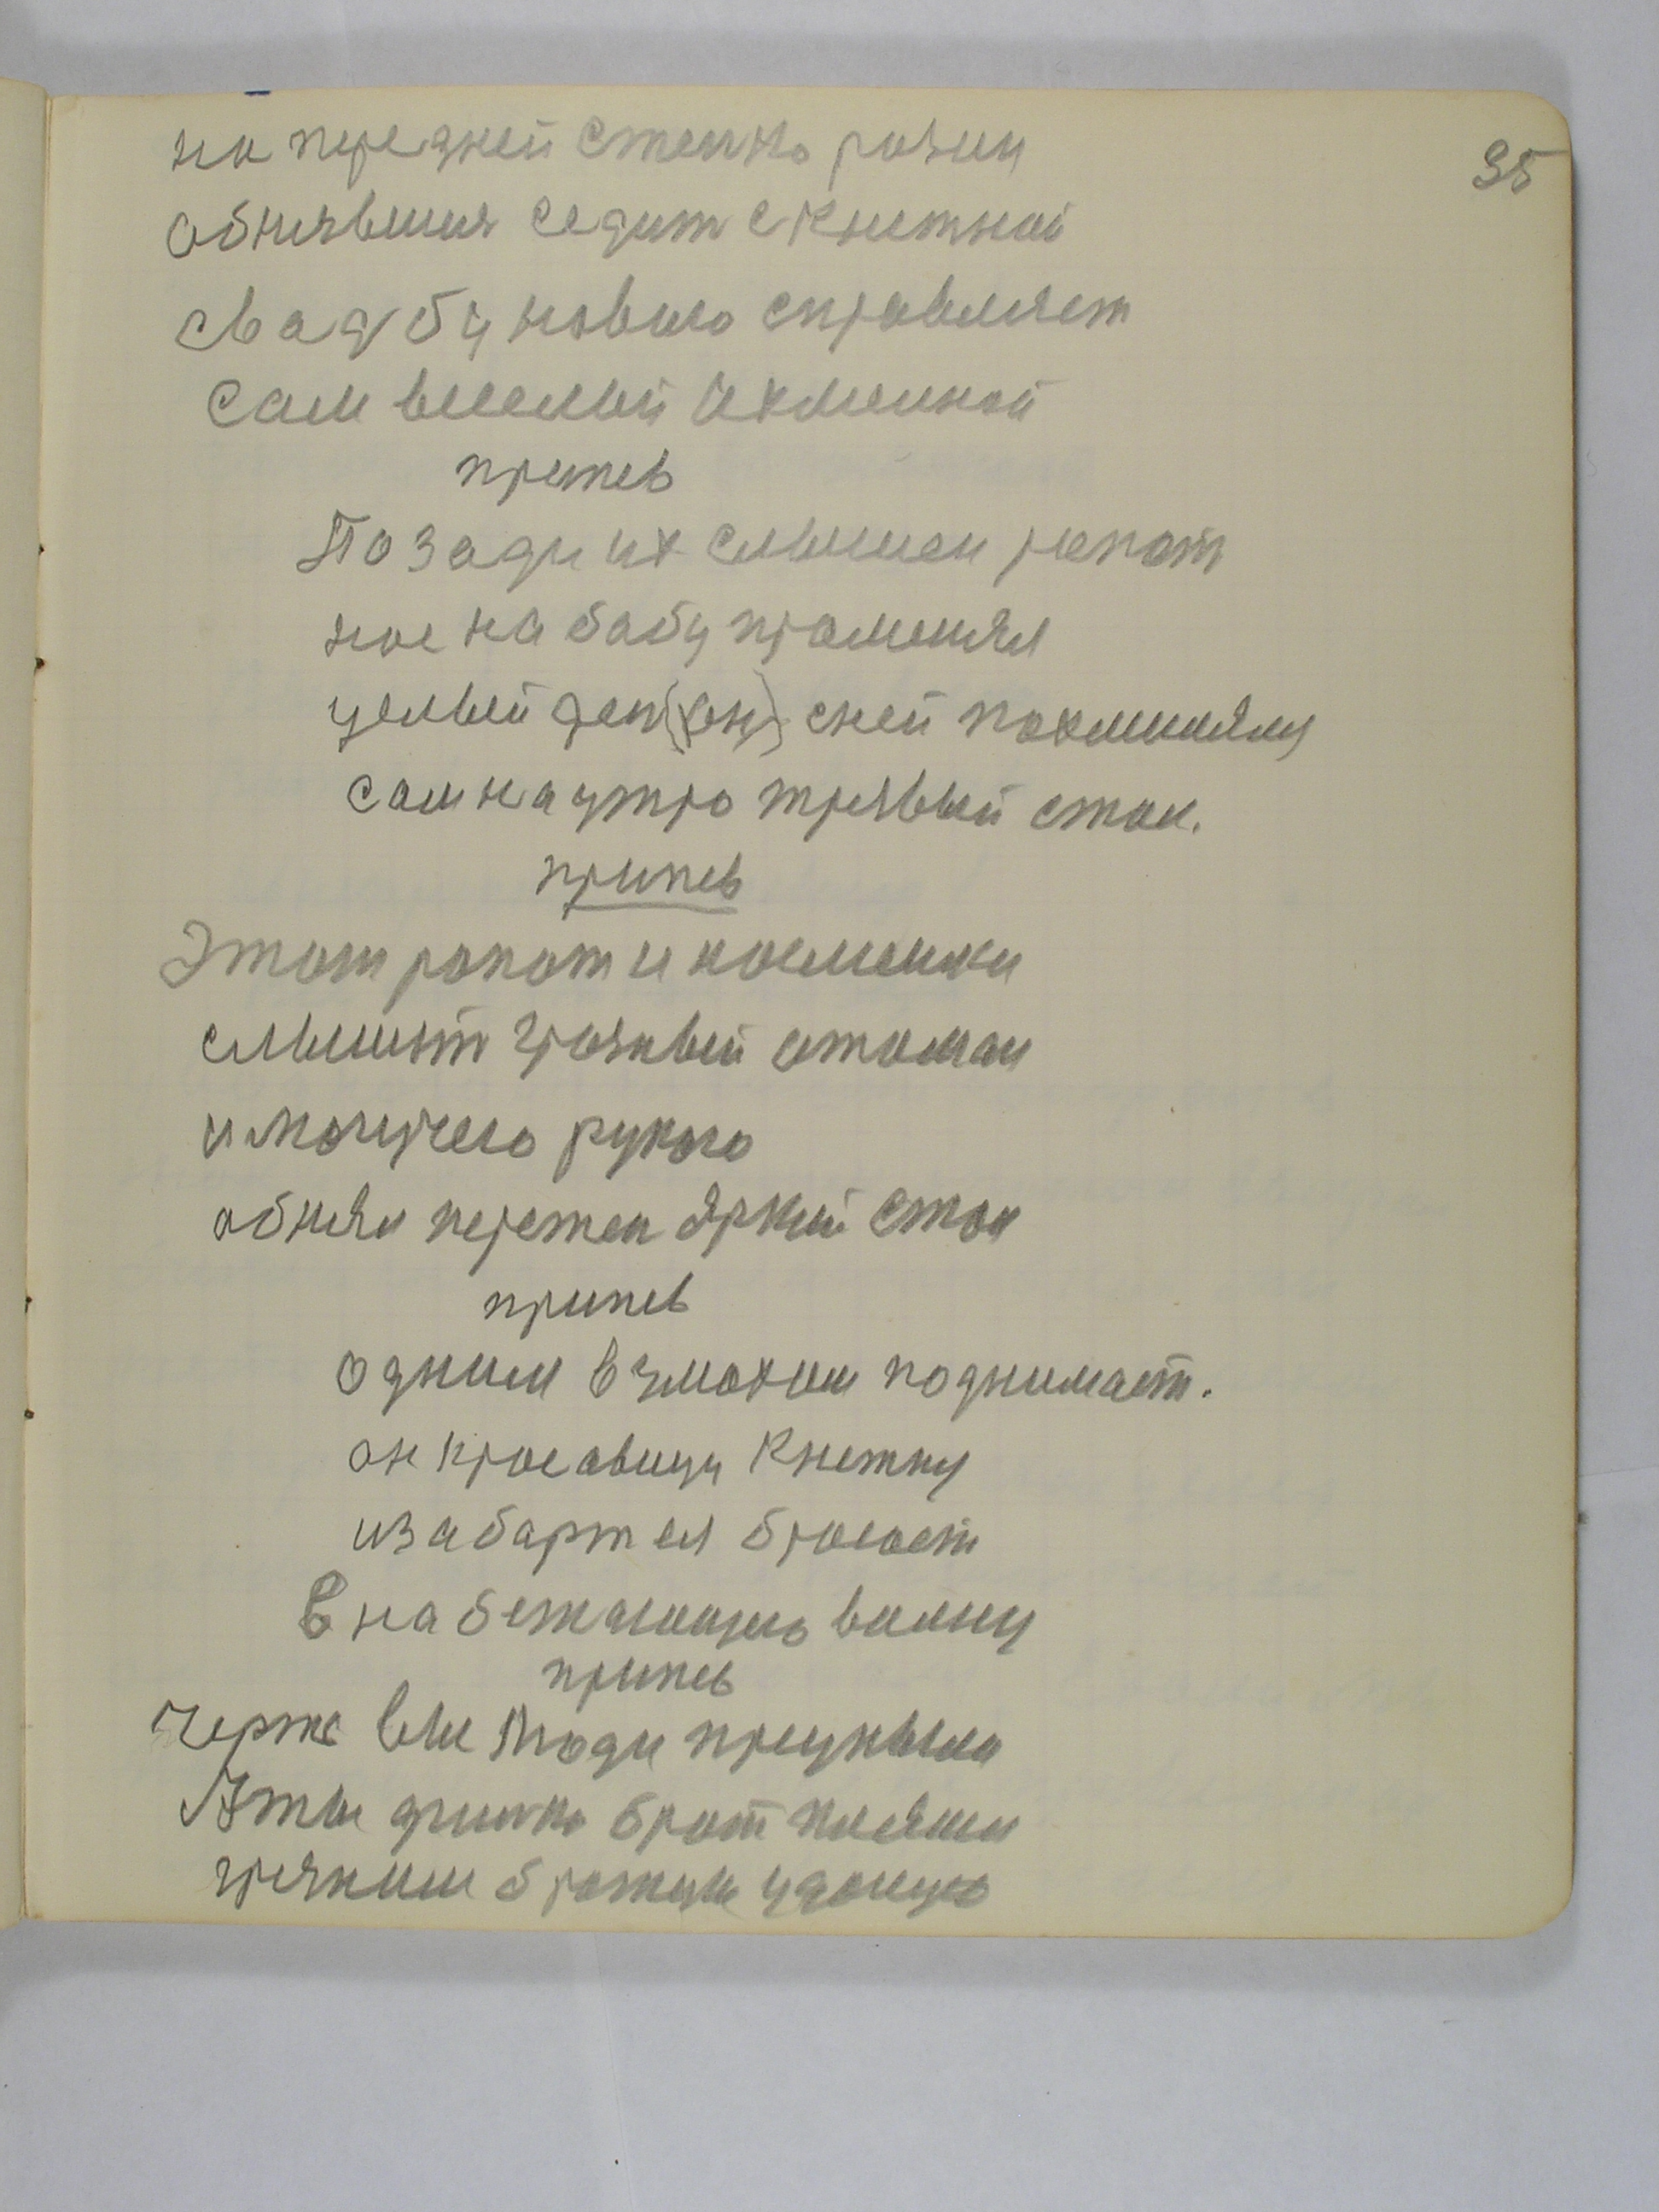 на передней стенко розин
95
обнявшия седит с Кнежной
свадбу новыю справляет
сам веселый Ихмельной
припев
Позади их слышен ропот
нас на бабу променял
целый ден (он) сней похмилялсу
сам на утро трявый стал.
припев
Этот ропот и насмешки
слышит грозный отоман
и могучею рукою
обнял перетен яркий стан
припев
одним взмахом поднимает.
он красавицу Кнежну
иза барт ея бросает
В набежающую волну
припев
черте вы люди приуныли
Аты филко брат пляши
гряним братцы удалую